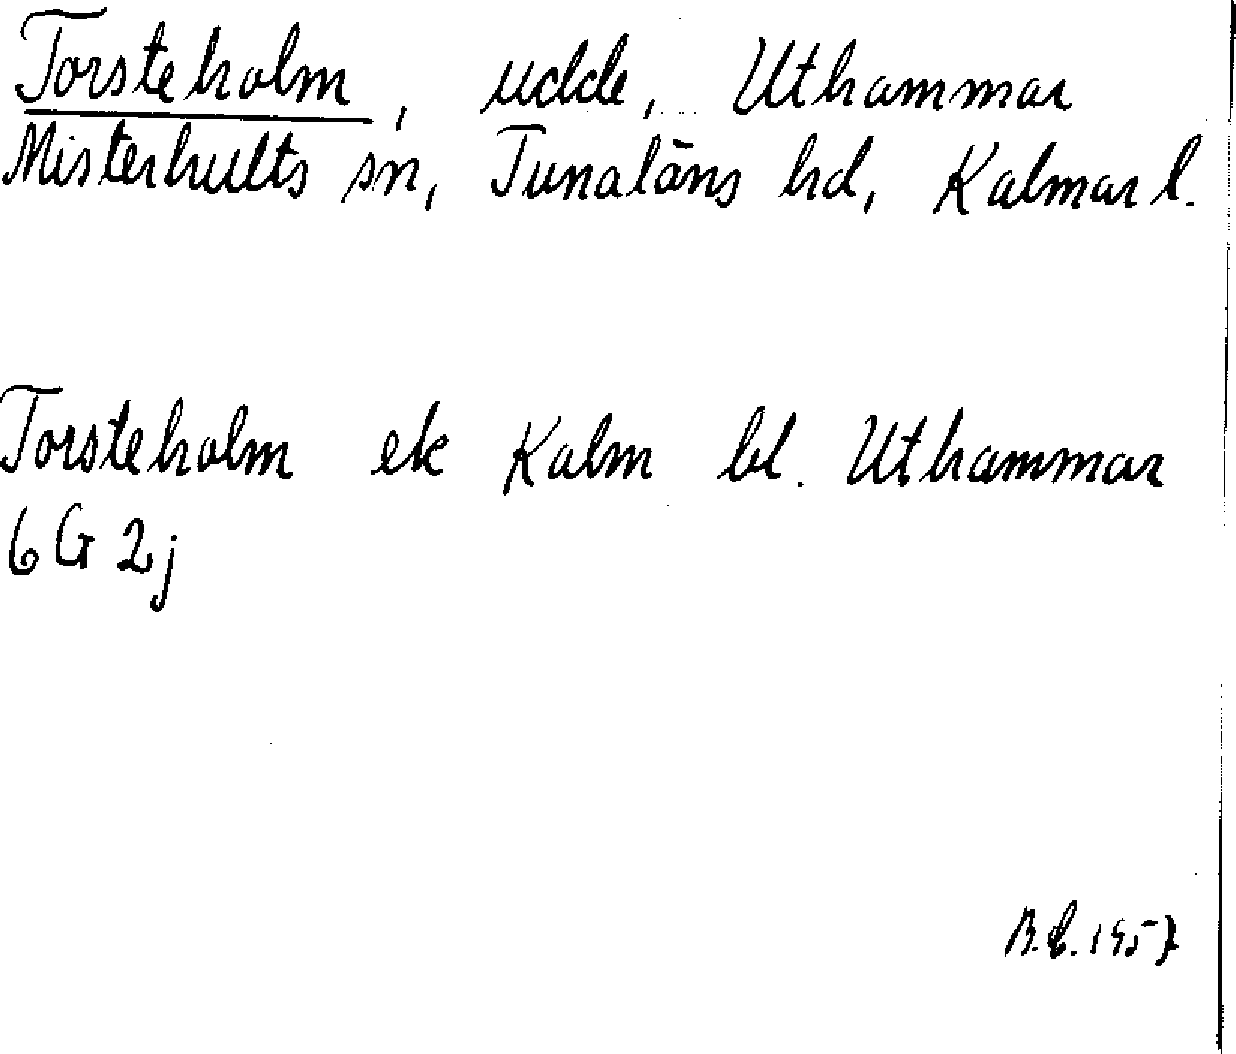 Torsteholm, udde, Uthammar
Misterhults sn, Tunaläns hd, Kalmar l.
Torsteholm ek Kalm bl. Uthammar
6G 2j
1957